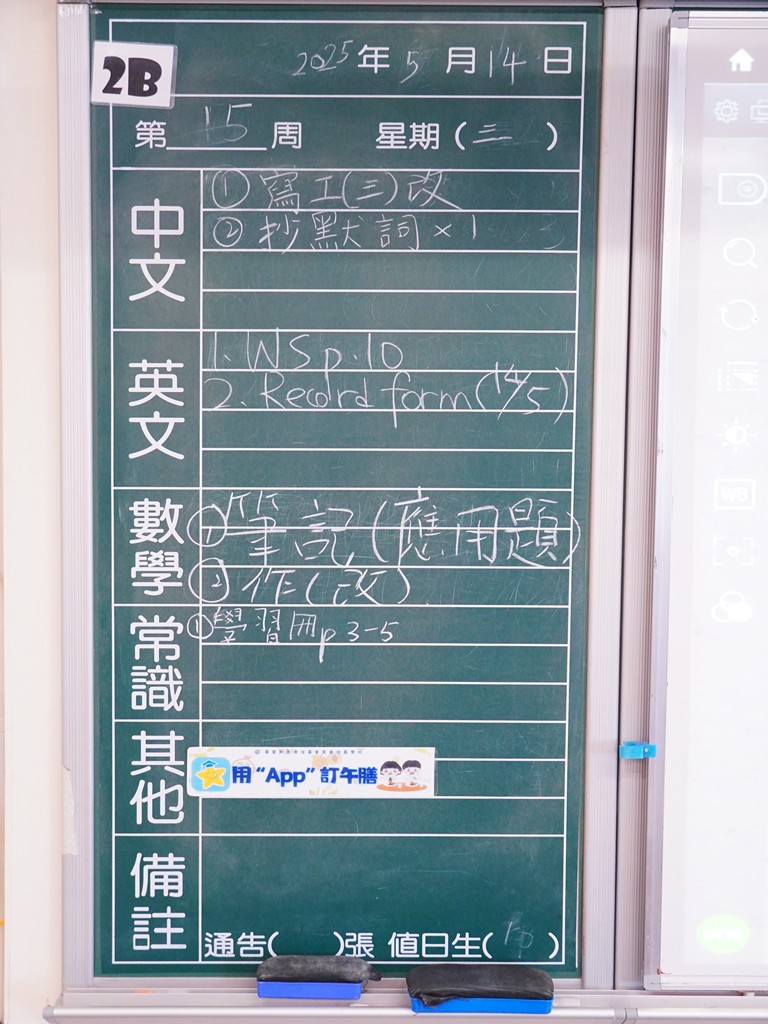 2B
2025年5月14日
第15周 星期(三)
中文
① 寫工(三)改
② 抄默詞×1
英文
1. WS p.10
2. Record form (14/5)
數學
① 筆記(應用題)
② 作(改)
常識
① 學習冊p3-5
其他
用“App”訂午膳
備註
通告( )張 值日生( )
WB